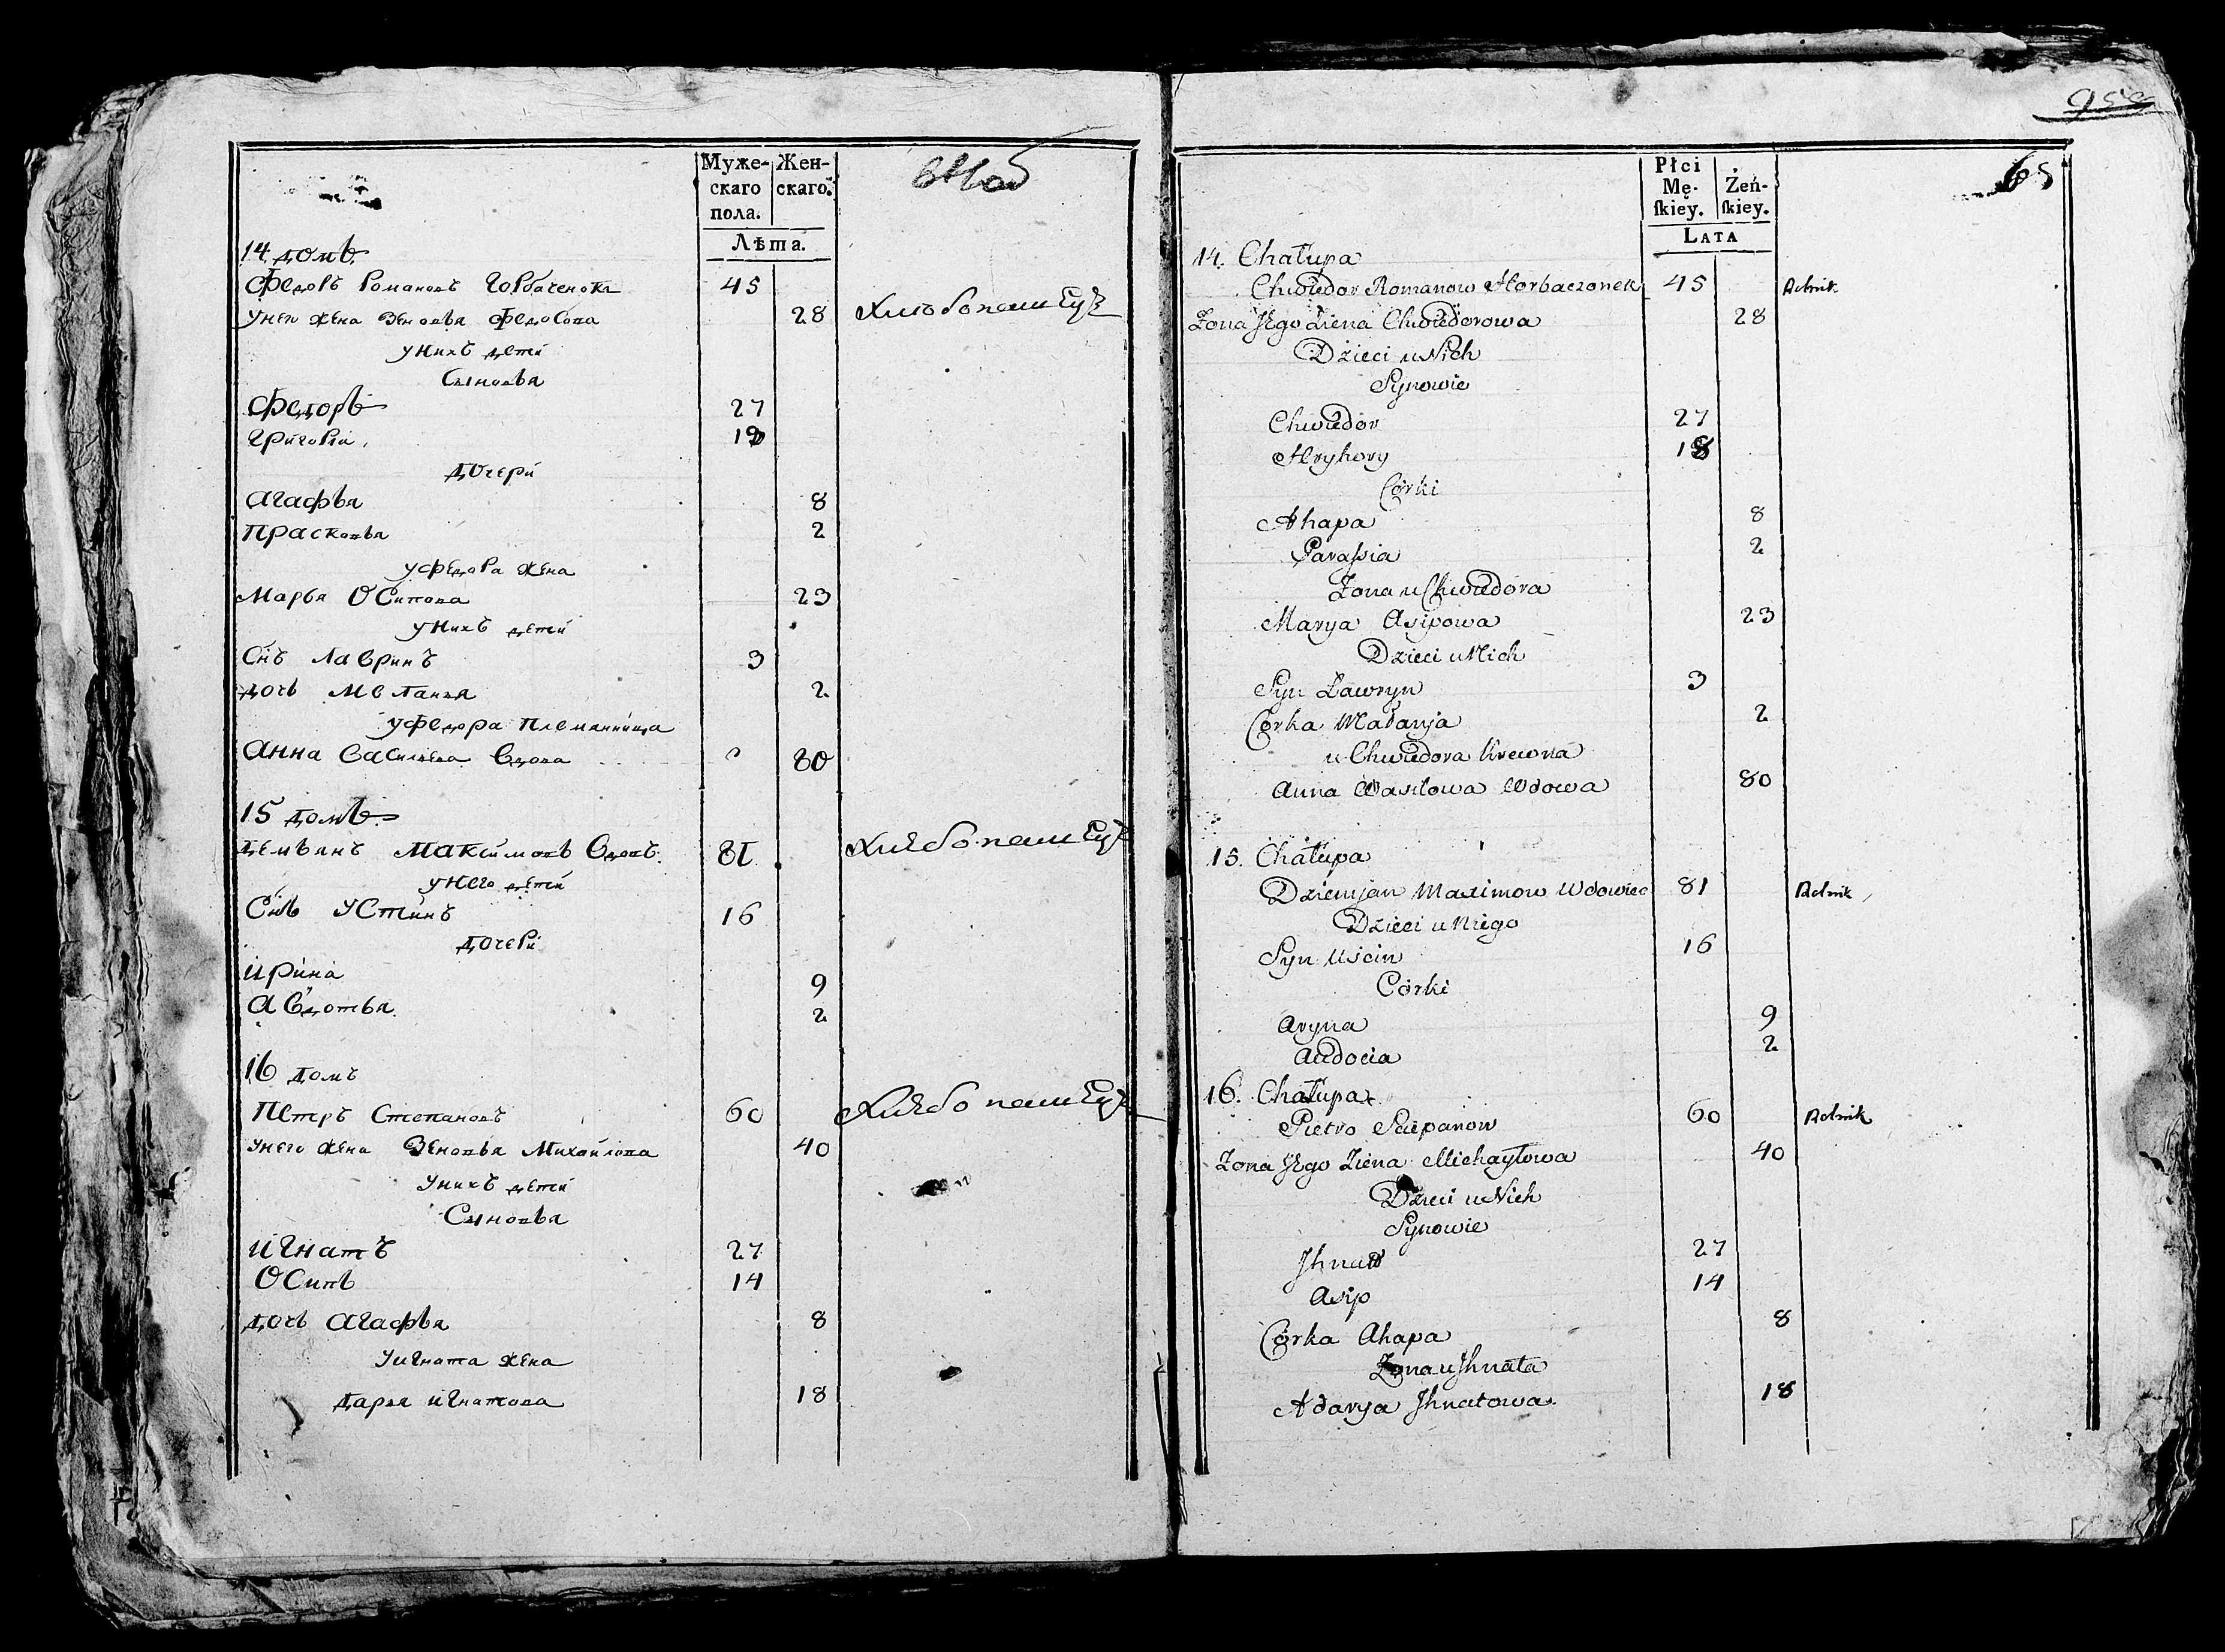 Муже- Жен-
скаго скаго.
пола.
Лѣта.
14 домъ
Федоръ Романовъ Горбаченокъ 45
унего жена Зеновья Федосова 28 Хлѣбопашецъ
унихъ дети
Сыновья
Федоръ 27
Григорiй 19
дочери
Агафья 8
Прасковья 2
уФедора жена
Марья Осипова 23
унихъ дети
Снъ Лавринъ 3
дочь Меланья 2
уФедора Племянница
Анна Васильева Вдова 80
15 домъ
Демьянъ Максимовъ Вдовъ. 81 Хлѣбопашецъ
унего дети
Снъ Устинъ 16
дочери
Ирина 9
Авдотья 2
16 домъ
Петръ Степановъ 60 Хлѣбопашецъ
унего жена Зеновья Михайлова 40
унихъ дети
Сыновья
Игнатъ 27
Осипъ 14
дочь Агафья 8
уИгната жена
Дарья Игнатова 18
65
Płci
Mę- Żeń-
skiey. skiey.
LATA
14. Chałupa
Chwiedor Romanow Horbaczonek 45 Rolnik
Zona Jego Ziena Chwiedorowa 28
Dzieci u Nich
Synowie
Chwiedor 27
Hryhory 18
Córki
Ahapa 8
Parassia 2
Zona u Chwiedora
Marya Asipowa 23
Dzieci u Nich
Syn Ławryn 3
Córka Małanja 2
u Chwiedora Krewna
Anna Wasilowa Wdowa 80
15. Chałupa
Dziemjan Maximow Wdowiec 81 Rolnik
Dzieci u Niego
Syn Uścin 16
Córki
Aryna 9
Audocia 2
16. Chałupa
Pietro Sciepanow 60 Rolnik
Zona Jego Ziena Michayłowa 40
Dzieci u Nich
Synowie
Jhnat 27
Asip 14
Córka Ahapa 8
Zona u Jhnata
Adarya Jhnatowa 18